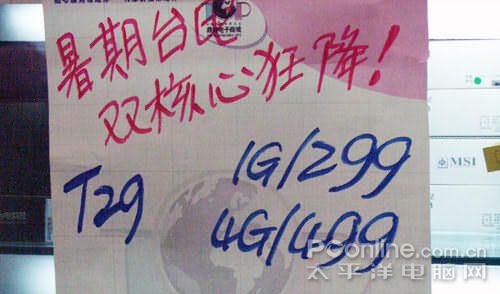 暑期台电
双核心狂降!
T29
1G/299
4G/499
MSI
Pconline.com.cn
太平洋电脑网